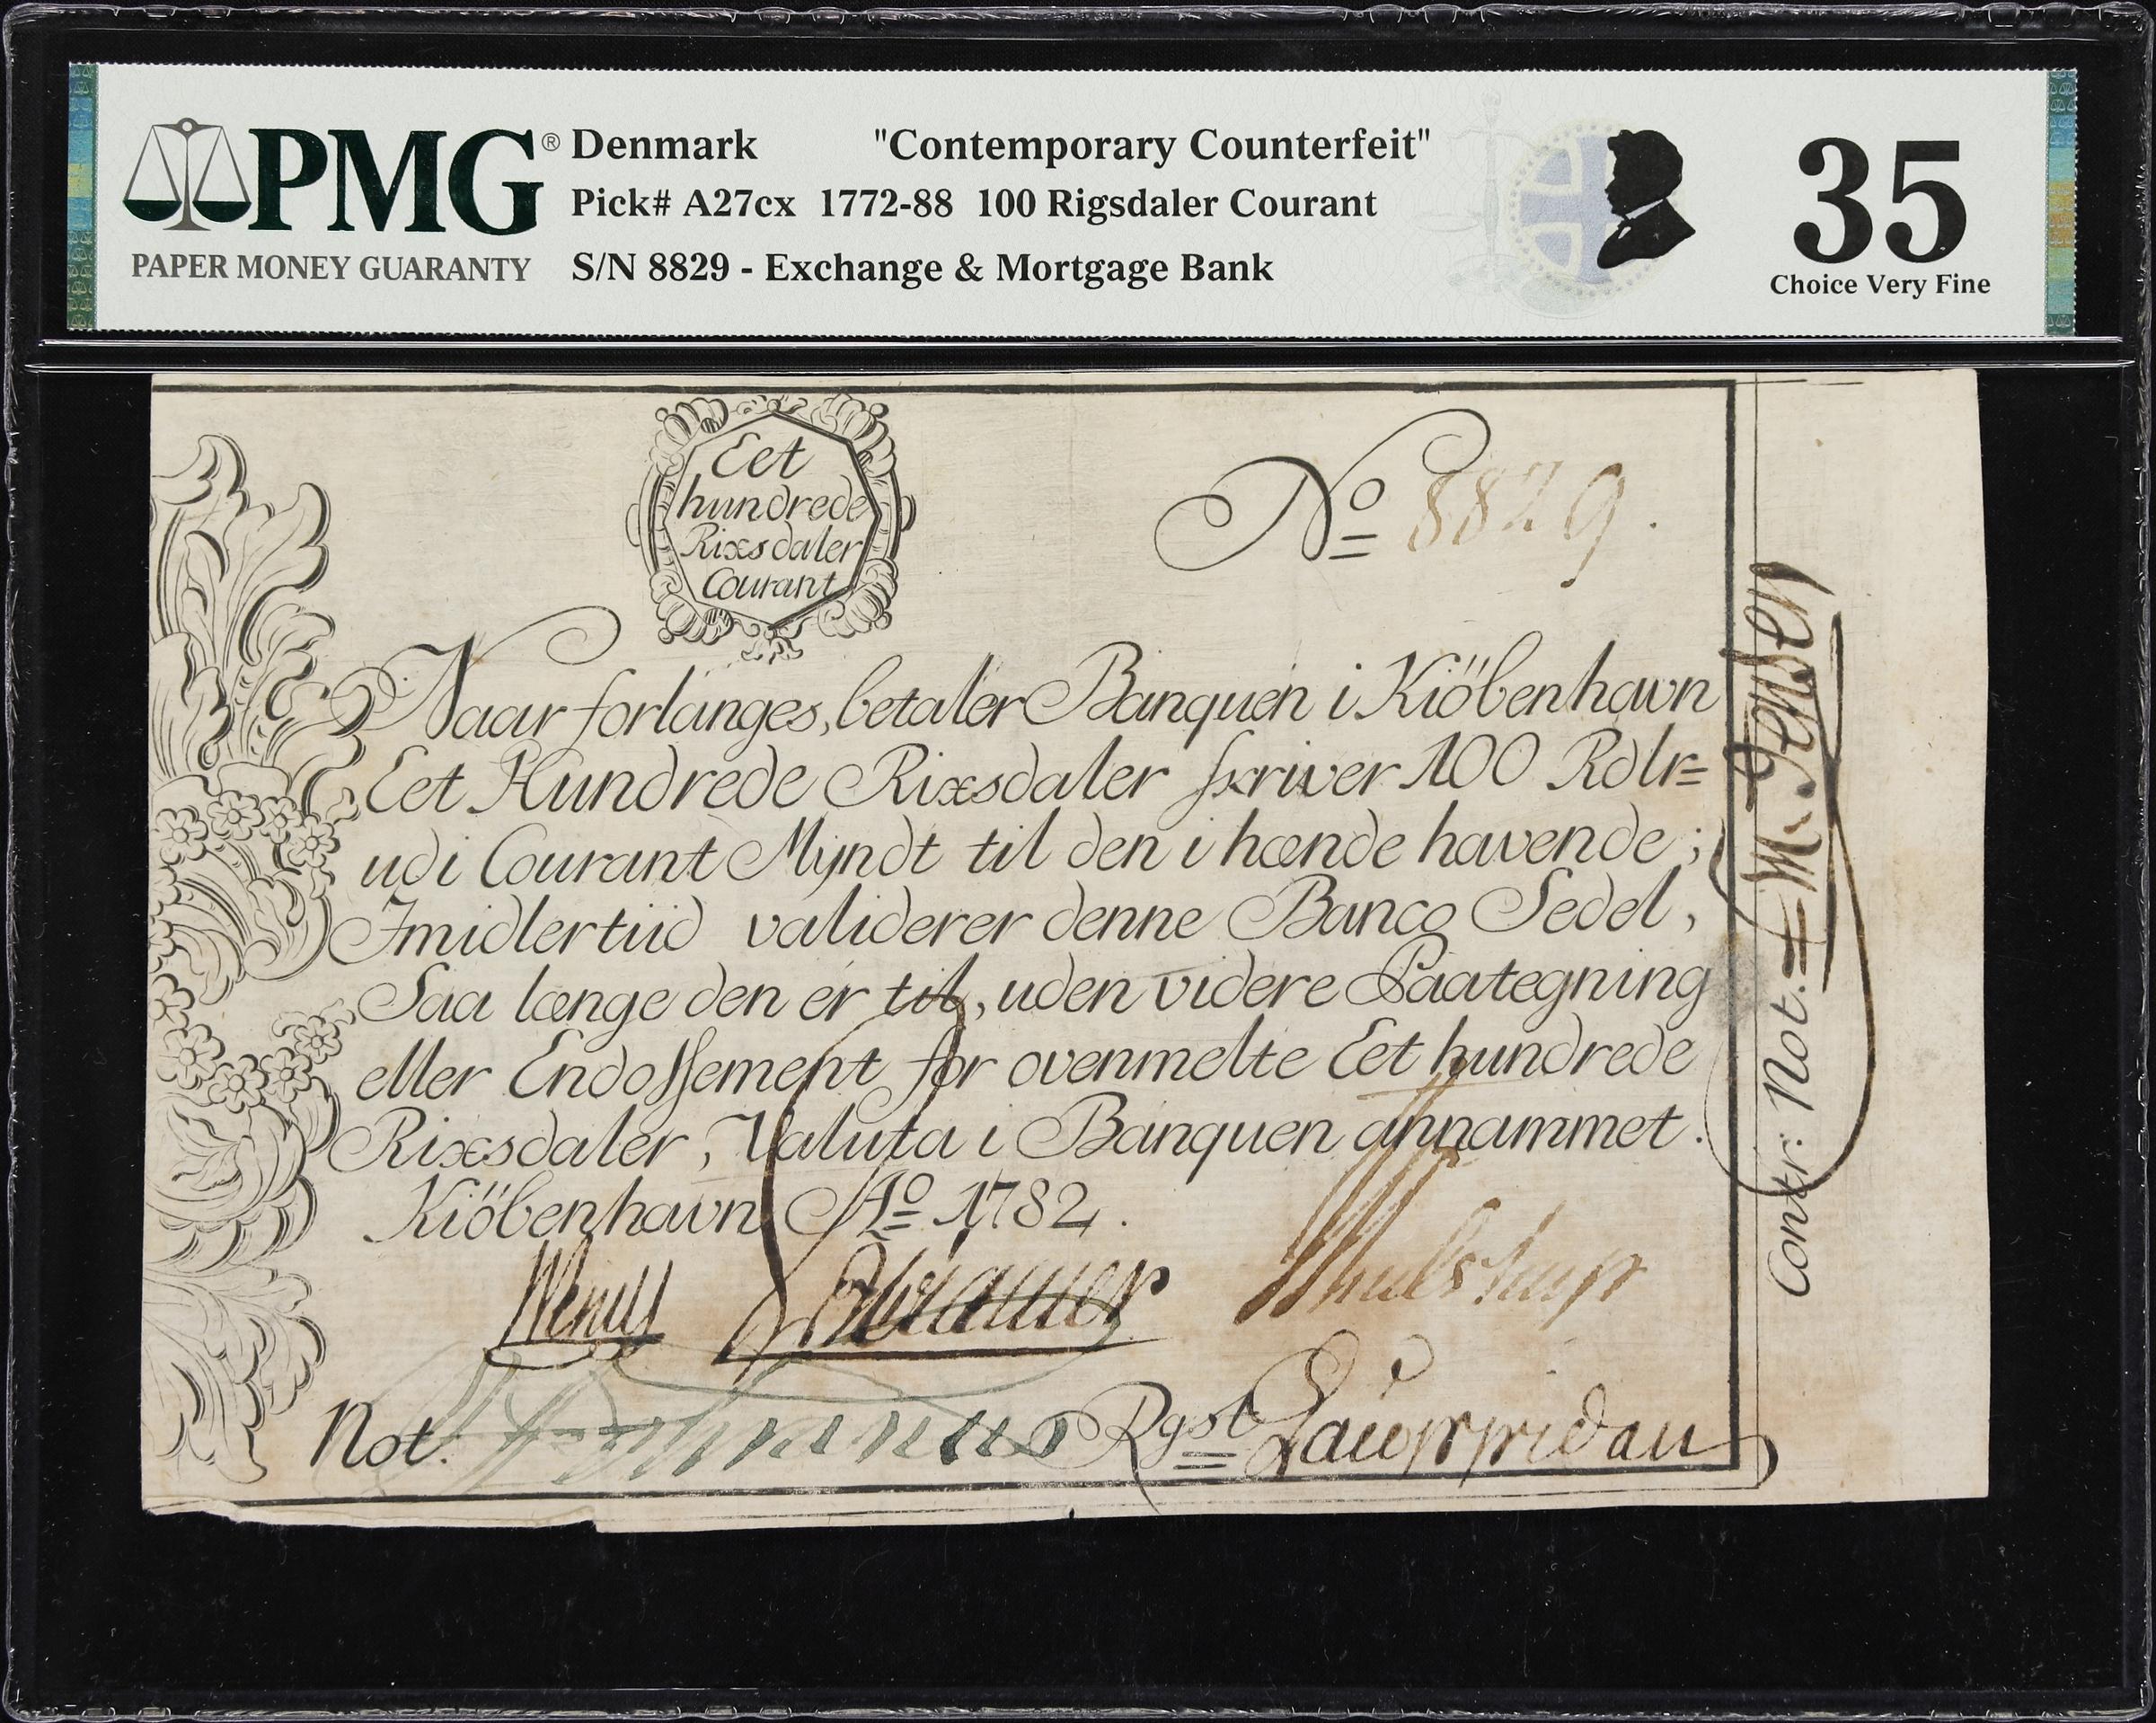 PMG®
PAPER MONEY GUARANTY
Denmark "Contemporary Counterfeit"
Pick# A27cx 1772-88 100 Rigsdaler Courant
S/N 8829 - Exchange & Mortgage Bank
35
Choice Very Fine
Eet
hundrede
Rixsdaler
Courant
No 8829.
Naar forlanges, betaler Banquen i Kiöbenhavn
Eet Hundrede Rixsdaler skriver 100 Rdlr=
udi Courant Myndt til den i hænde havende;
Imidlertiid validerer denne Banco Sedel,
Saa længe den er til, uden videre Paategning
eller Endossement for ovenmelte Eet hundrede
Rixsdaler, Valuta i Banquen annammet.
Kiöbenhavn Ao 1782.
Not. Rgst
Contr: Not. M. Jensen